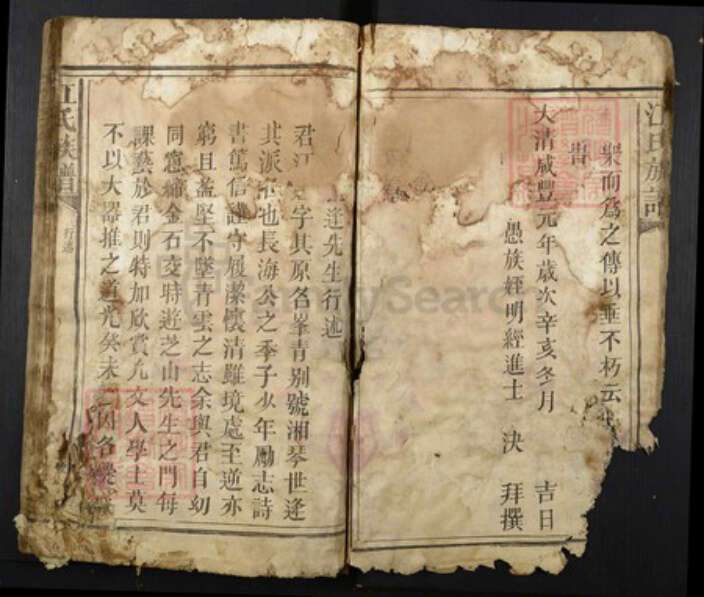 江氏族譜
衆而爲之傳以垂不朽云
旹
大清咸豐元年歲次辛亥冬月 吉日
愚族姪明經進士 決 拜撰
逢先生行述
君 字其原名峯青別號湘琴世逢
其派 也長海公之季子少年勵志詩
書篤信謹守履潔懷清雖境處至逆亦
窮且益堅不墜青雲之志余與君自幼
同窓締金石交時遊芝山先生之門每
課藝於君則特加欣賞凡文人學士莫
不以大器推之道光癸未 因各
江氏族譜
行述
FamilySearch